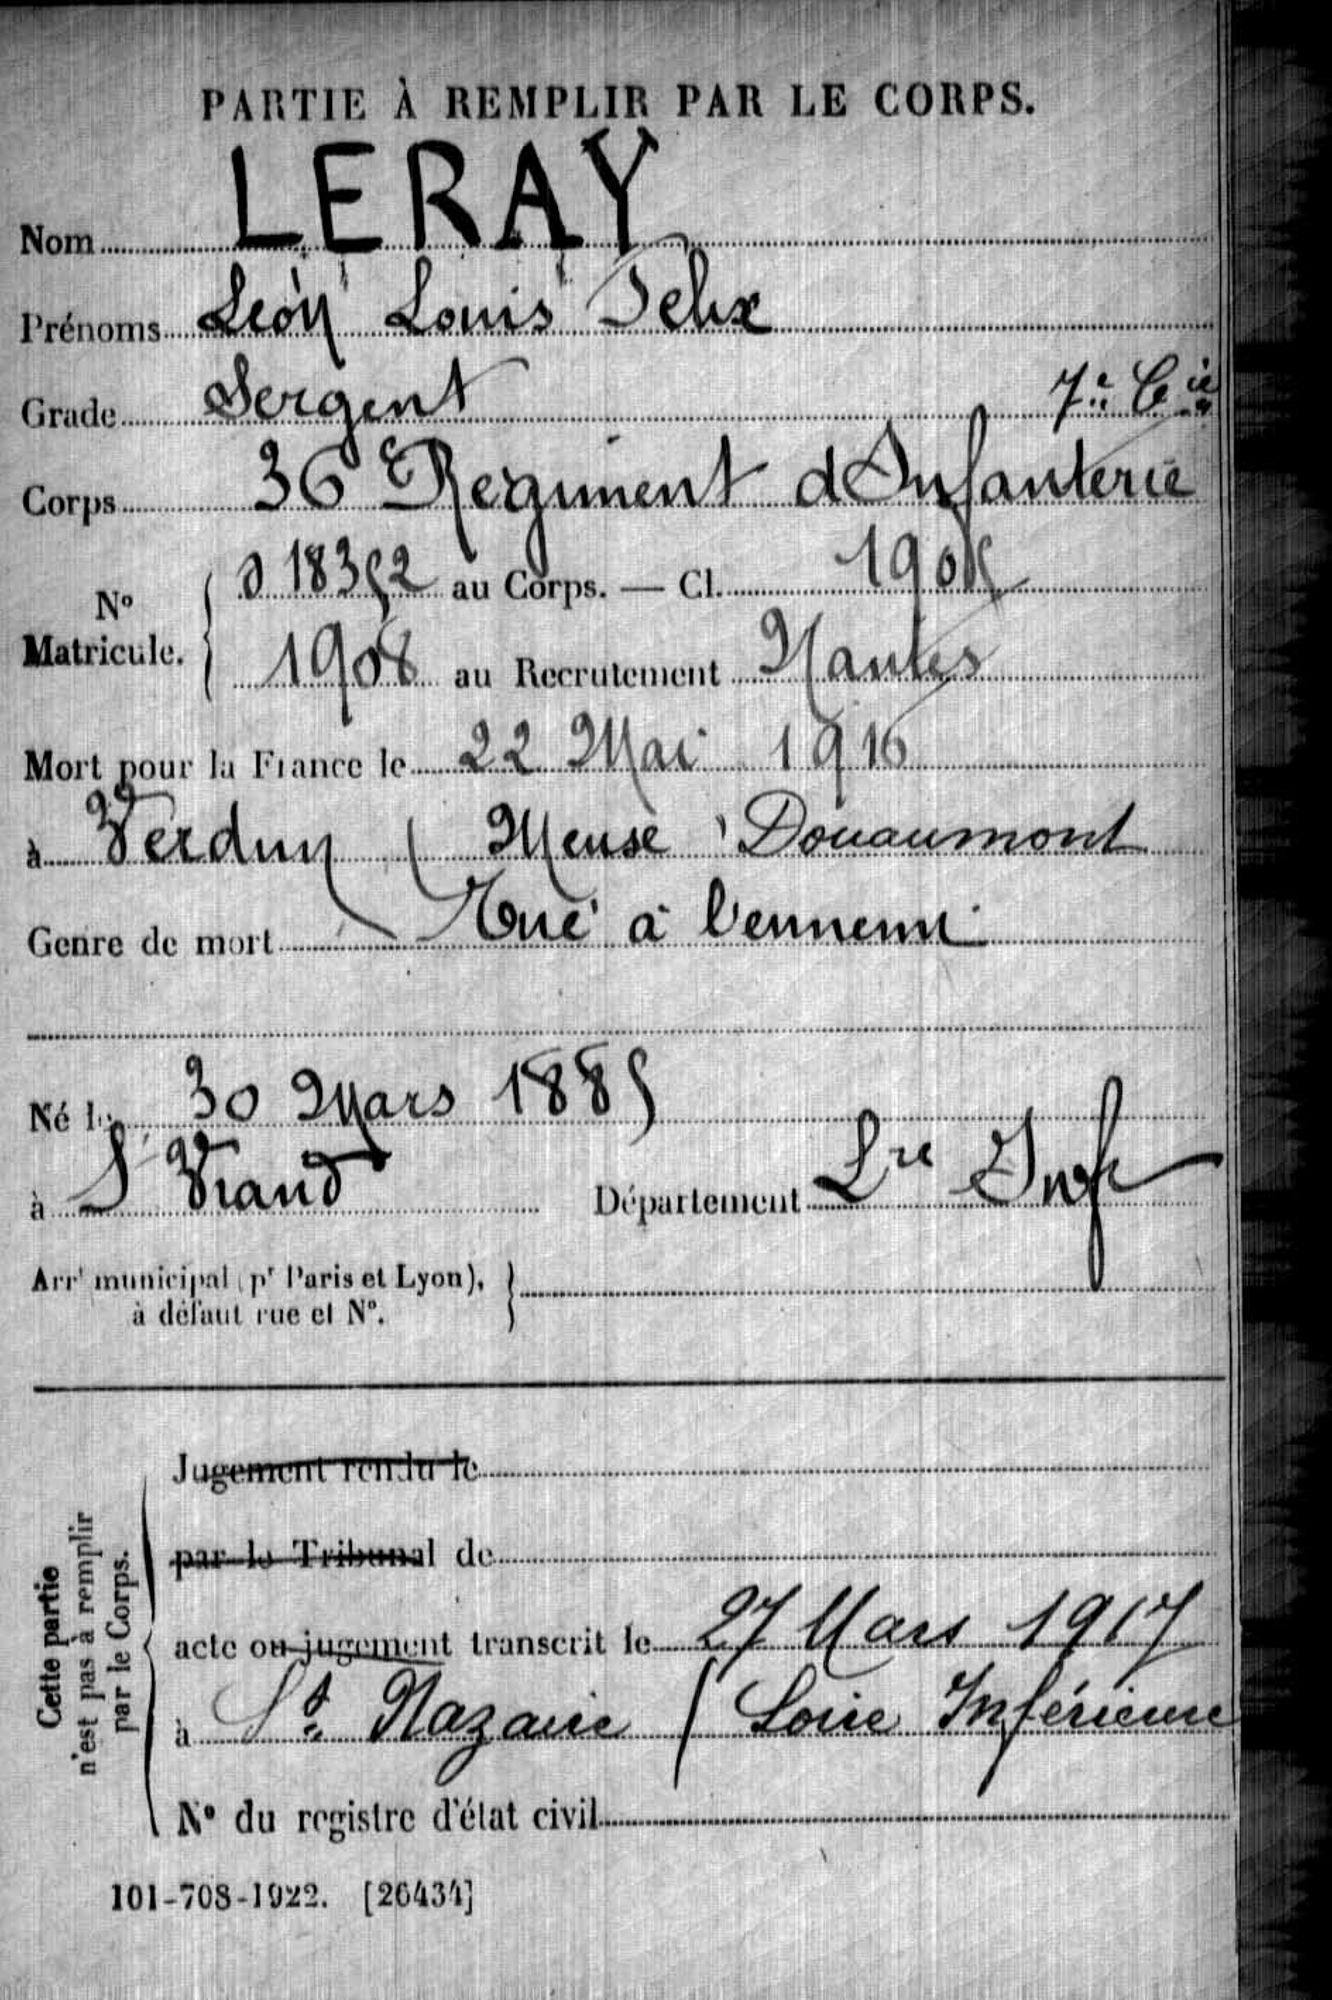 PARTIE À REMPLIR PAR LE CORPS.
Nom LERAY
Prénoms Léon Louis Felix
Grade Sergent 7e Cie
Corps 36e Regiment d'Infanterie
No Matricule. 018352 au Corps. — Cl. 1905
1908 au Recrutement Nantes
Mort pour la France le 22 Mai 1916
à Verdun (Meuse) Douaumont
Genre de mort Tué à l'ennemi
Né le 30 Mars 1885
à St Viaud Département Lre Infre
Arrt municipal (pr Paris et Lyon),
à défaut rue et No.
Cette partie
n'est pas à remplir
par le Corps.
Jugement rendu le
par le Tribunal de
acte ou jugement transcrit le 27 Mars 1917
à St Nazaire (Loire Inférieure
No du registre d'état civil
101-708-1922. [26434]